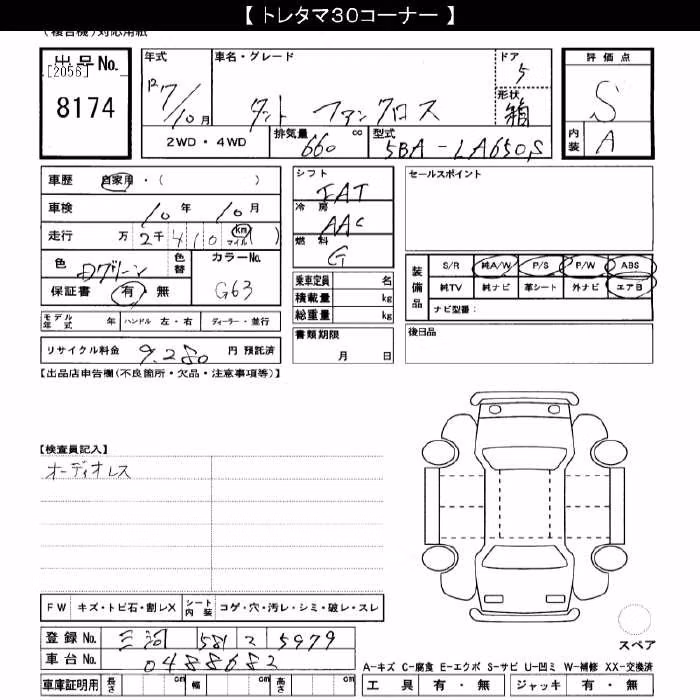 【 トレタマ30コーナー 】
(複合機)対応用紙
出品No. [2056] 8174
年式 R7/10月
車名・グレード タント ファンクロス
ドア 5
形状 箱
2WD・4WD
排気量 660 cc
型式 5BA-LA650S
評価点 S
内装 A
車歴 自家用・( )
車検 10年 10月
走行 万 2千 4 1 0 km マイル ( )
色 Dグリーン 色替 カラーNo. G63
保証書 有 無
モデル年式 年 ハンドル 左・右 ディーラー・並行
リサイクル料金 9,280 円 預託済
シフト IAT
冷房 AAC
燃料 G
乗車定員 名
積載量 kg
総重量 kg
書類期限 月 日
セールスポイント
装備品 S/R 純A/W P/S P/W ABS
純TV 純ナビ 革シート 外ナビ エアB
ナビ型番:
後日品
【出品店申告欄(不良箇所・欠品・注意事項等)】
【検査員記入】
オーディオレス
FW キズ・トビ石・割レX シート内装 コゲ・穴・汚レ・シミ・破レ・スレ
登録No. 三河 581 こ 5979
車台No. 0488682
車庫証明用 長さ cm 幅 cm 高さ cm
スペア
A-キズ C-腐食 E-エクボ S-サビ U-凹ミ W-補修 XX-交換済
工具 有・無 ジャッキ 有・無